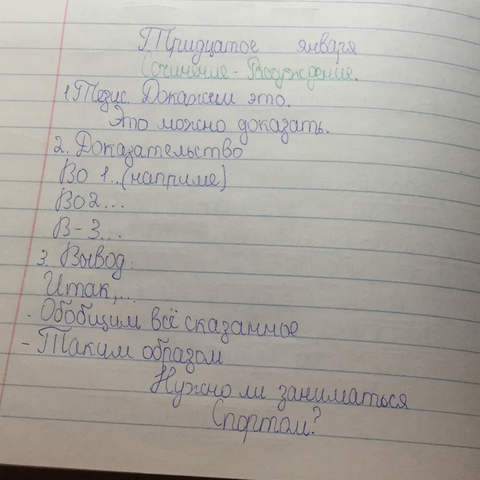 Тридцатое января
Сочинение - Рассуждение.
1. Тезис. Докажем это.
Это можно доказать.
2. Доказательство
Во 1..(наприме)
Во2...
В-3...
3. Вывод:
Итак,...
- Обобщим всё сказанное
- Таким образом
Нужно ли заниматься
Спортом?